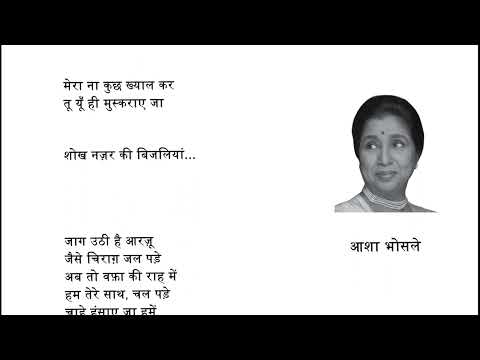 मेरा ना कुछ ख्याल कर
तू यूँ ही मुस्कराए जा
शोख नज़र की बिजलियां...
जाग उठी है आरज़ू
जैसे चिराग़ जल पड़े
अब तो वफ़ा की राह में
हम तेरे साथ, चल पड़े
चाहे हंसाए जा हमें
आशा भोसले